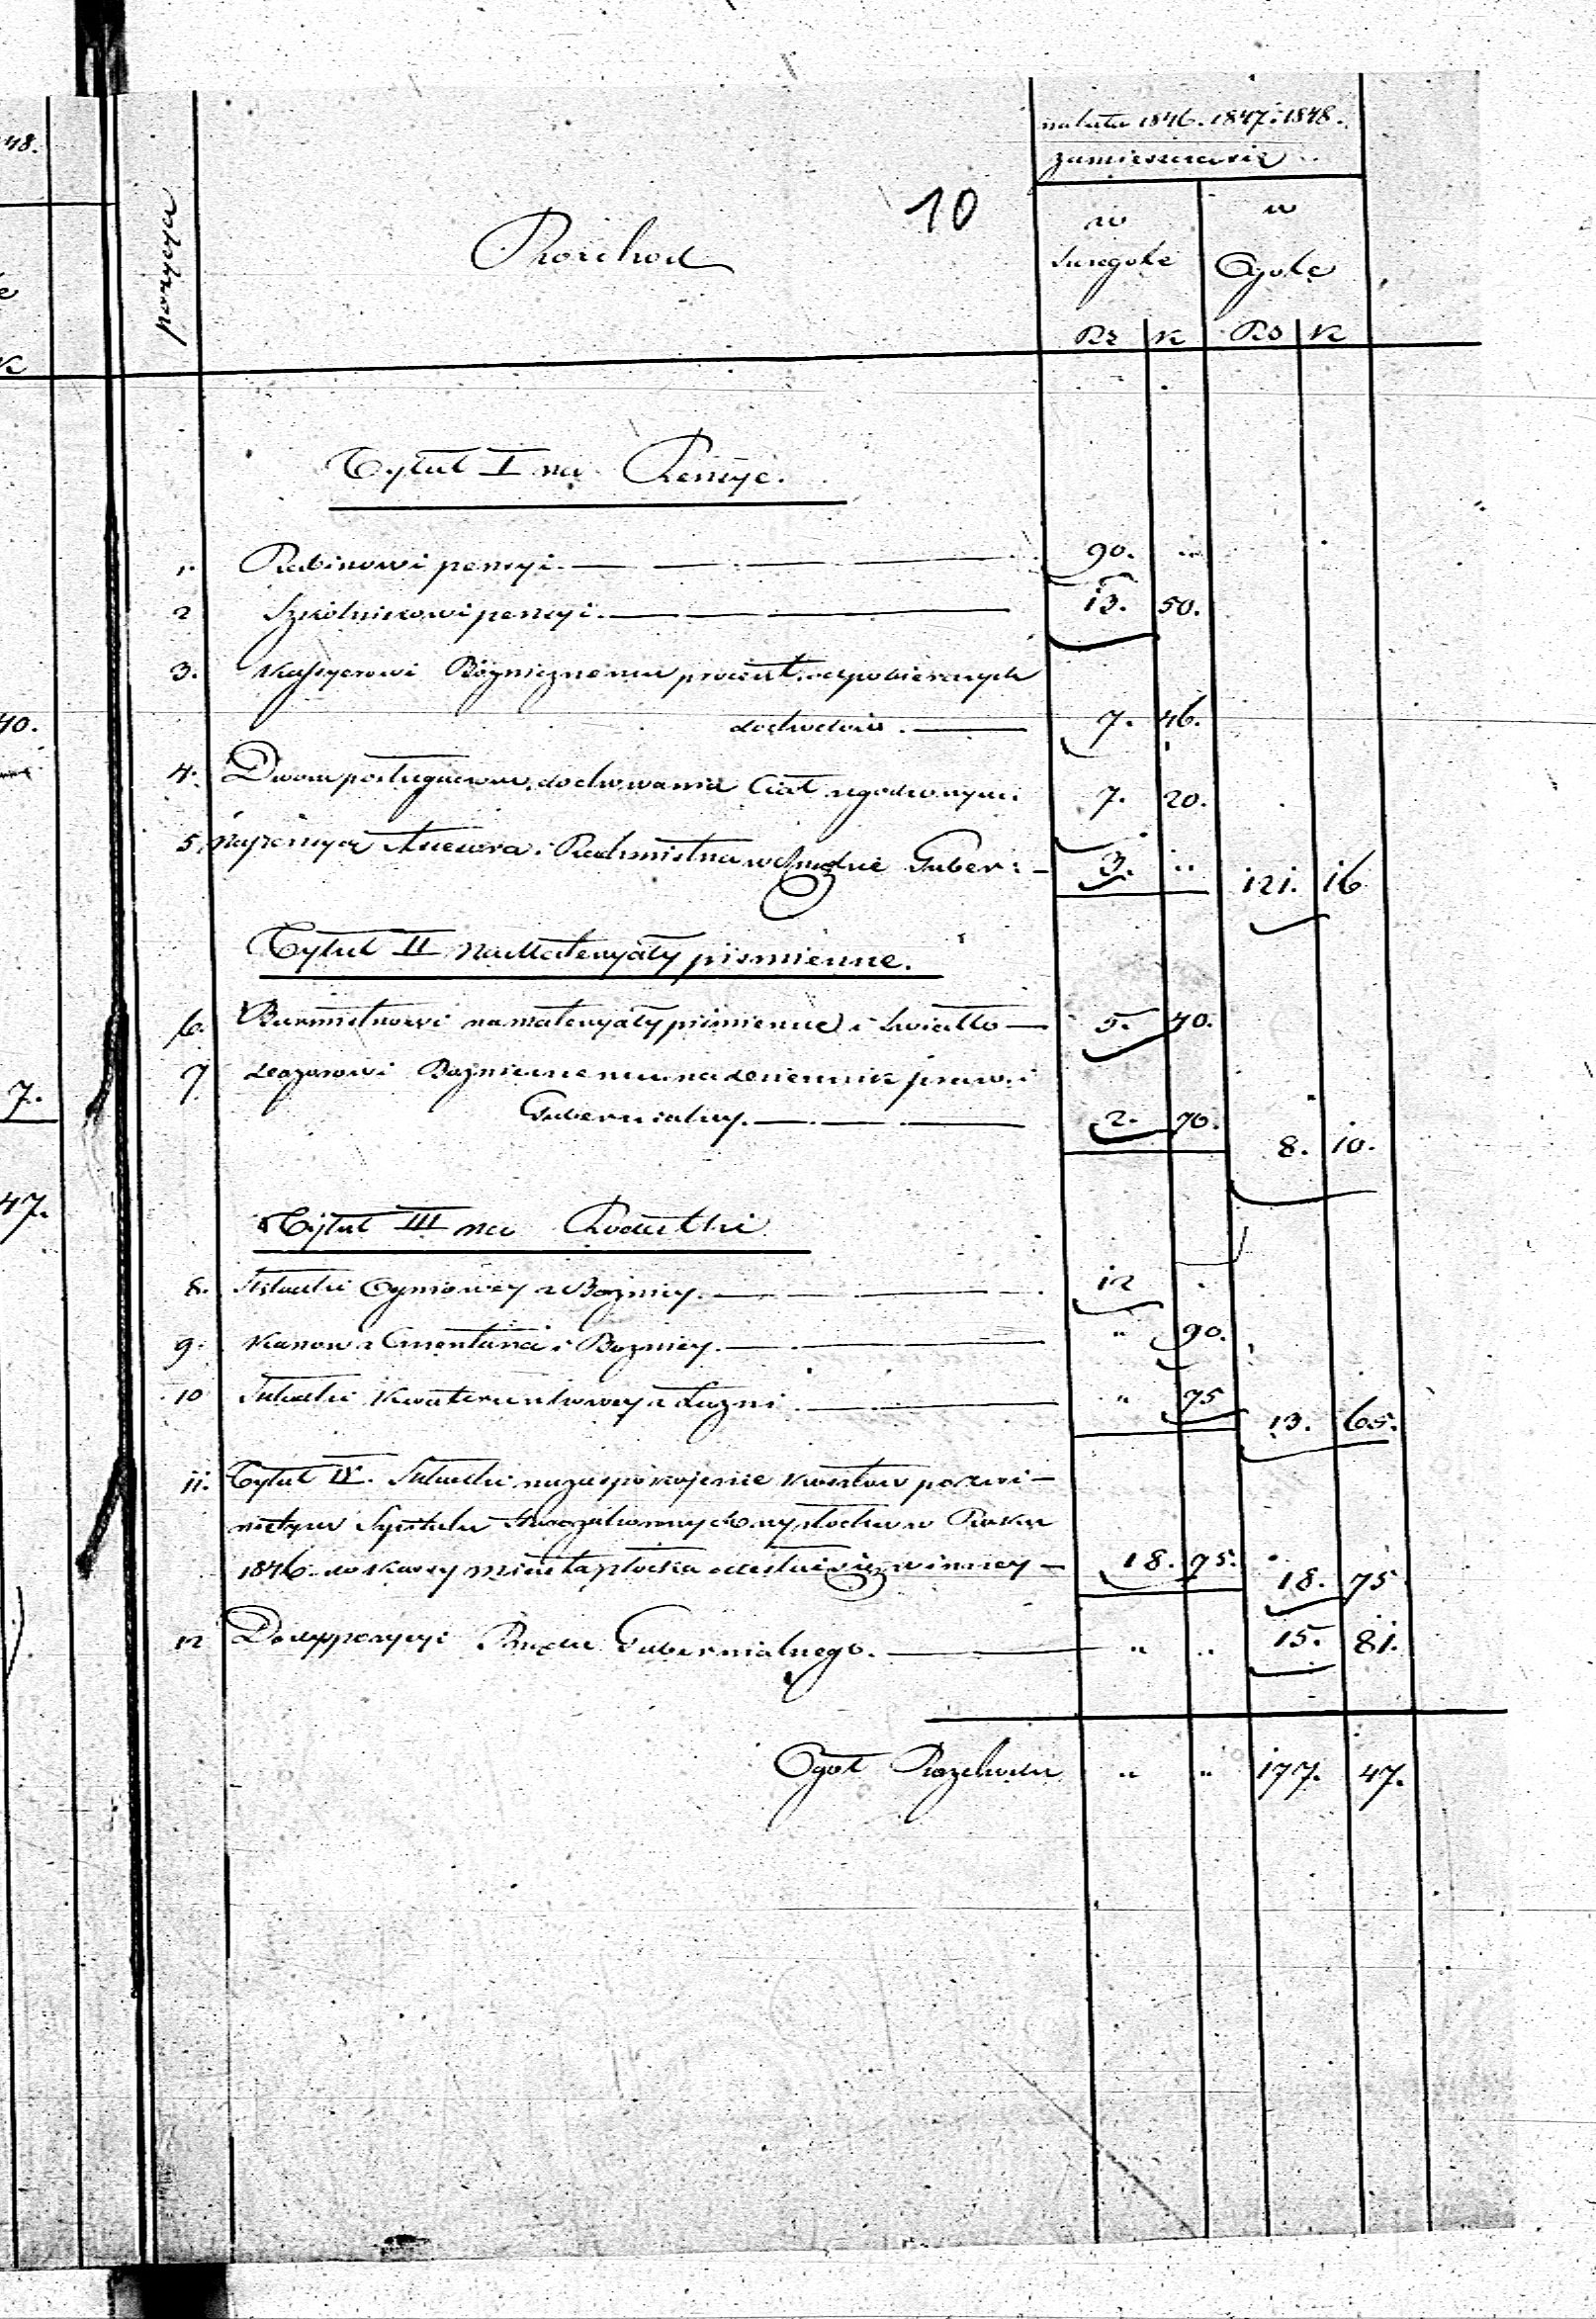 48.
na lata 1846. 1847. i 1848.
zamieszcza się
pozycya
10
Rozchod
w
Szczególe
w
Ogóle
Rs K Rs K
K
Tytuł I na Pensye.
1. Rabinowi pensyi. 90. "
2 Szkolnikowi pensyi. 13. 50.
3. Kassyerowi Bożnicznemu procent. od pobieranych
dochodów. 7. 46.
40.
4. Dwom posługaczom do chowania Ciał ugodzonym. 7. 20.
5. na pensyą Assesora i Rachmistrza w Rządzie Guber: 3. " 121. 16
Tytuł II na Materyały piśmienne.
6. Burmistrzowi na materyały piśmienne i światło 5. 40.
7 Dozorowi Bożnicznemu na dziennik praw. i
7.
Gubernialny. 2. 70. 8. 10.
47.
Tytuł III na Podatki
8. Składki Ogniowey z Bożnicy. 12 .
9. Kanon z Cmentarza i Bożnicy. " 90.
10 Składki Kwaterunkowey z Łaźni. " 75 13. 65.
11. Tytuł IV. Składki na zaspokojenie kosztów
1846. do Kassy Miasta Płocka 18. 75. 18. 75
12 Do dyspozycyi Rządu Gubernialnego. " " 15. 81.
Ogół Rozchodu " " 177. 47.